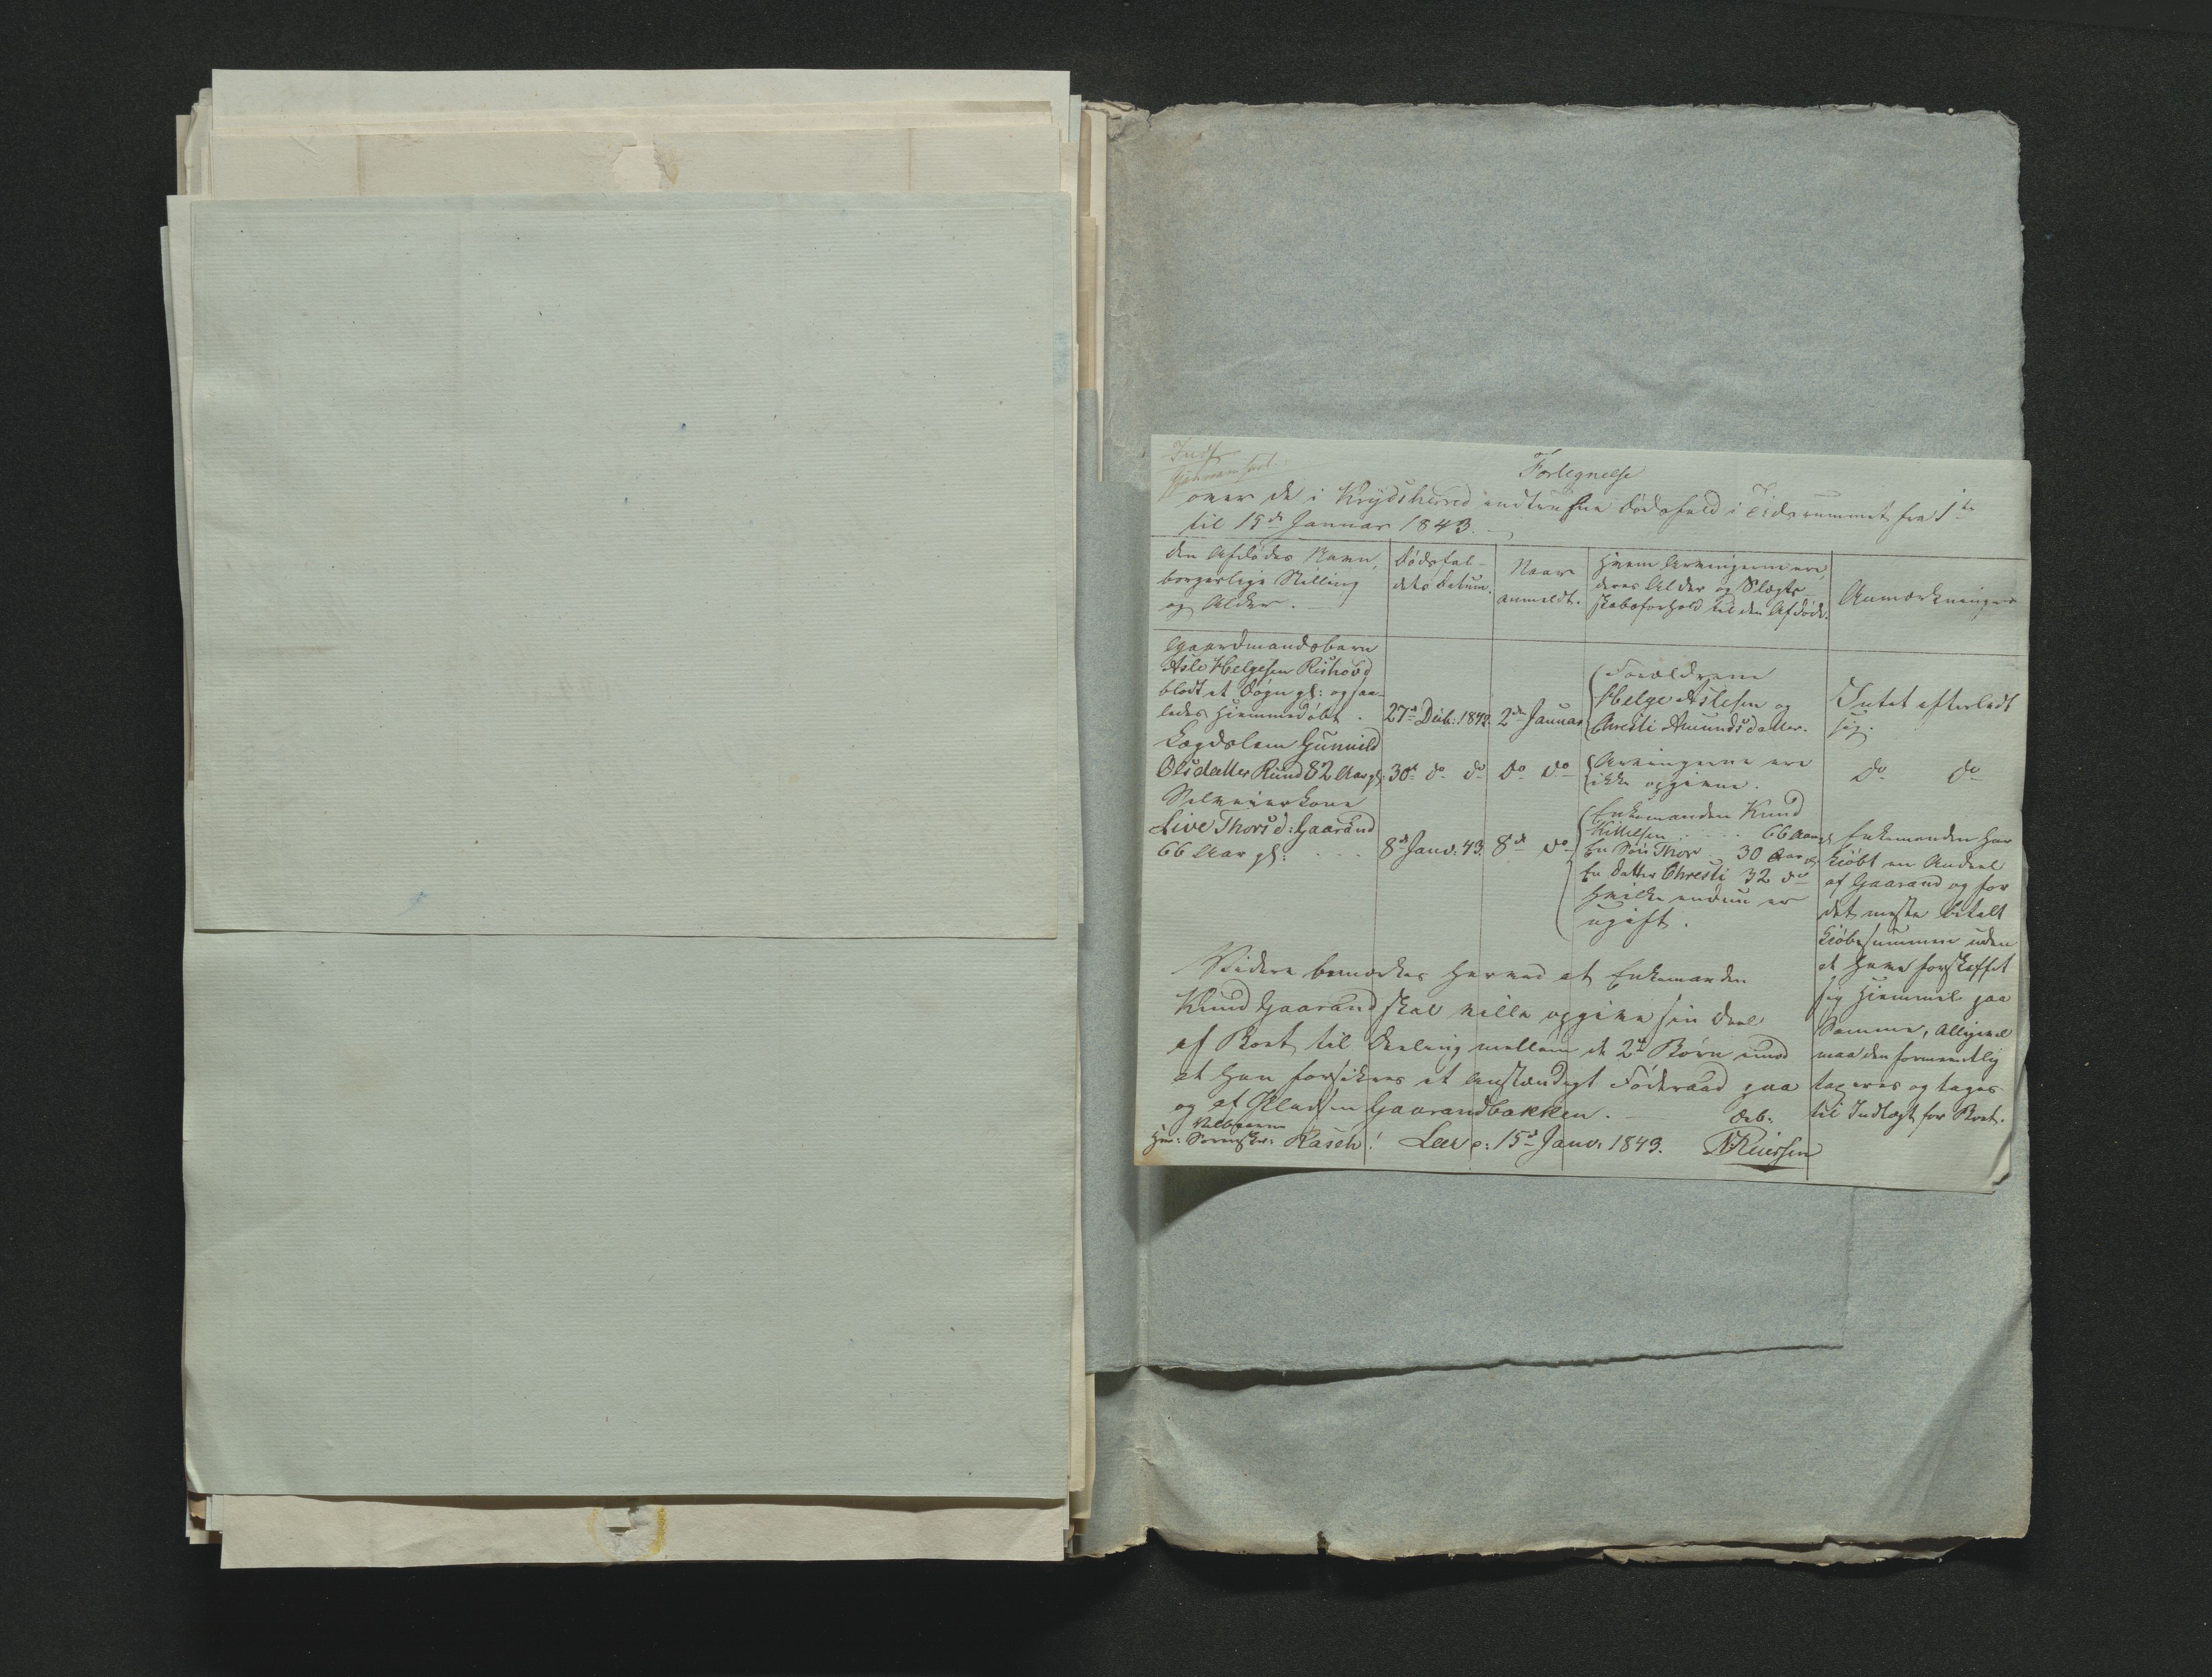 Fortegnelse
over de i Krydsherred indtrufne Dødsfald i Tidsrummet fra 1te
til 15de Januar 1843.
Den Afdødes Navn,
borgerlige Stilling
og Alder.
Dødsfal-
dets Datum.
Naar
anmeldt.
Hvem Arvingerne ere,
deres Alder og Slægt-
skabsforhold til den Afdøde.
Anmærkninger
Gaardmandsbarn
Asle Helgesen Rishovd
blodt et Døgn gl: og saa-
ledes hjemmedøbt.
27de Decb: 1842.
2den Januar
Forældrene
Helge Aslesen og
Christi Amundsdatter.
Intet efterladt
sig.
Lægdslem Gunnild
Olsdatter Rund 82 Aar gl:
30te do do
do do
Arvingerne ere
ikke opgivne.
do do
Selveierkone
Live Thorsd: Gaarand
66 Aar gl: . . .
8de Janv. 43.
8de do
Enkemanden Knud
Kittelsen . . . . 66 Aar gl
En Søn Thor 30 Aar gl
En Datter Christi 32 do
hvilke endnu er
ugift.
Enkemanden har
kiøbt en Andeel
af Gaarand og for
det meste betalt
Kiøbesummen uden
at have forskaffet
sig Hiemmel paa
Samme, alligevel
maa den formentlig
taxeres og tages
til Indtægt for Boet.
Videre bemærkes herved at Enkemanden
Knud Gaarand skal ville opgive sin Deel
af Boet til Deeling mellem de 2de Børn imod
at han forsikres et anstændigt Føderaad paa
og af Pladsen Gaarandbakken.
Velbaarne
Hr: Sorenskr: Rasch! Leer p: 15de Janv: 1843.
Ærb: